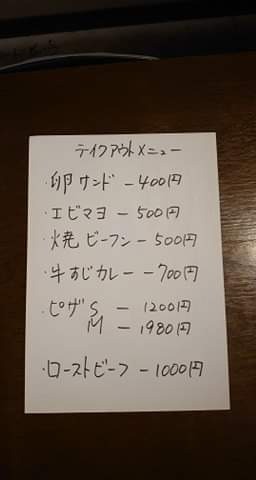 テイクアウトメニュー
・卵サンド − 400円
・エビマヨ − 500円
・焼ビーフン − 500円
・牛すじカレー − 700円
・ピザ S − 1200円
M − 1980円
・ローストビーフ − 1000円